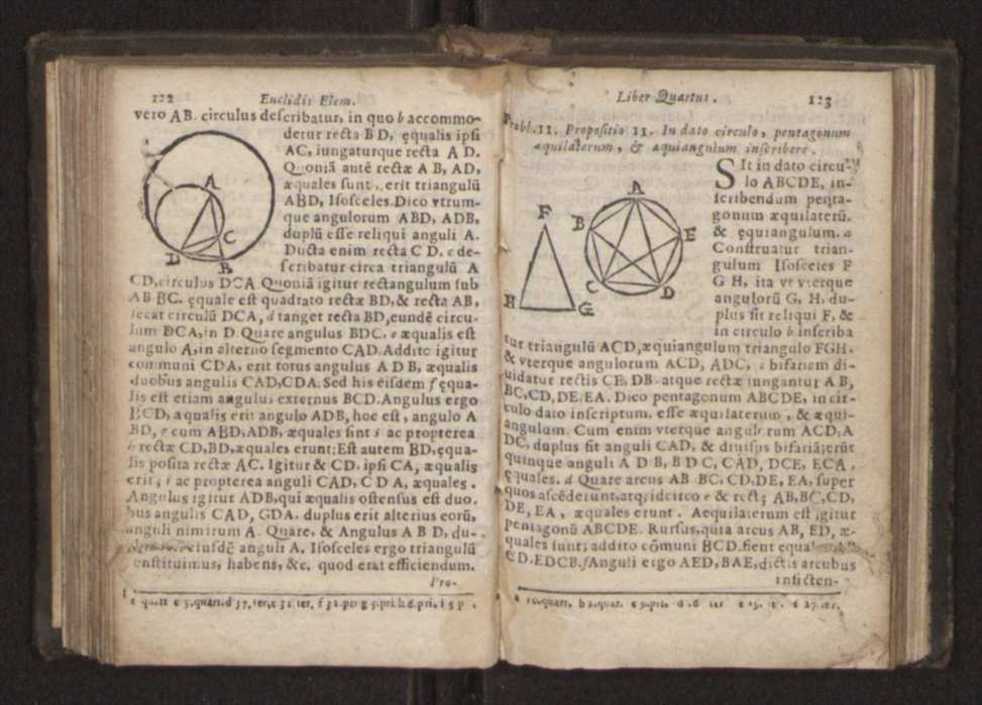 122 Euclidis Elem.
vero AB. circulus describatur, in quo b accommo-
detur recta BD, ęqualis ipsi
AC, iungaturque recta A D.
Quoniã autẽ rectæ A B, AD,
æquales sunt, erit triangulũ
ABD, Isosceles. Dico vtrum-
que angulorum ABD, ADB,
duplũ esse reliqui anguli A.
Ducta enim recta C D, c de-
scribatur circa triangulũ A
CD, circulus DCA. Quoniã igitur rectangulum sub
AB BC. ęquale est quadrato rectæ BD, & recta AB,
secat circulũ DCA, d tanget recta BD, eundẽ circu-
lum DCA, in D. Quare angulus BDC, e æqualis est
angulo A, in alterno segmento CAD. Addito igitur
communi CDA, erit totus angulus A D B, æqualis
duobus angulis CAD, CDA. Sed his eisdem f ęqua-
lis est etiam angulus externus BCD. Angulus ergo
BCD, æqualis erit angulo ADB, hoc est, angulo A
BD, cum ABD, ADB, æquales sint ac propterea
rectæ CD, BD, æquales erunt; Est autem BD, ęqua-
lis posita rectæ AC. Igitur & CD, ipsi CA, æqualis
erit, i ac propterea anguli CAD, C D A, æquales.
Angulus igitur ADB, qui æqualis ostensus est duo.
bus angulis CAD, GDA. duplus erit alterius eorũ,
anguli nimirum A. Quare, & Angulus A B D, du-
eiusdẽ anguli A. Isosceles ergo triangulũ
constituimus, habens, &c. quod erat efficiendum.
Pro-
A
C
D
B
Liber Quartus. 123
Probl. 11. Propositio 11. In dato circulo, pentagonum
æquilaterum, & æquiangulum inscribere.
SIt in dato circu-
lo ABCDE, in-
scribendum penta-
gonum æquilaterũ.
& ęquiangulum. a
Construatur trian-
gulum Isosceles F
G H, ita vt vterque
angulorũ G, H, du-
plus sit reliqui F, &
in circulo b inscriba
tur triangulũ ACD, æquiangulum triangulo FGH.
& vterque angulorum ACD, ADC, c bifariem di-
uidatur rectis CE, DB. atque rectæ iungantur A B,
BC, CD, DE, EA. Dico pentagonum ABCDE, in cir-
culo dato inscriptum, esse æquilaterum, & æqui-
angulum. Cum enim vterque angulorum ACD, A
DC, duplus sit anguli CAD, & diuisus bifariã; erũt
quinque anguli A D B, B D C, CAD, DCE, ECA,
ęquales. d Quare arcus AB BC, CD, DE, EA, super
quos ascẽderunt, atq; idcirco e & rectę AB, BC, CD,
DE, EA, æquales erunt. Aequilaterum est igitur
pentagonũ ABCDE. Rursus, quia arcus AB, ED, æ-
quales sunt; addito cõmuni BCD. fient equales
CD. EDCB. f Anguli ergo AED, BAE, dictis arcubus
insisten-
F
H
G
A
B
E
C
D